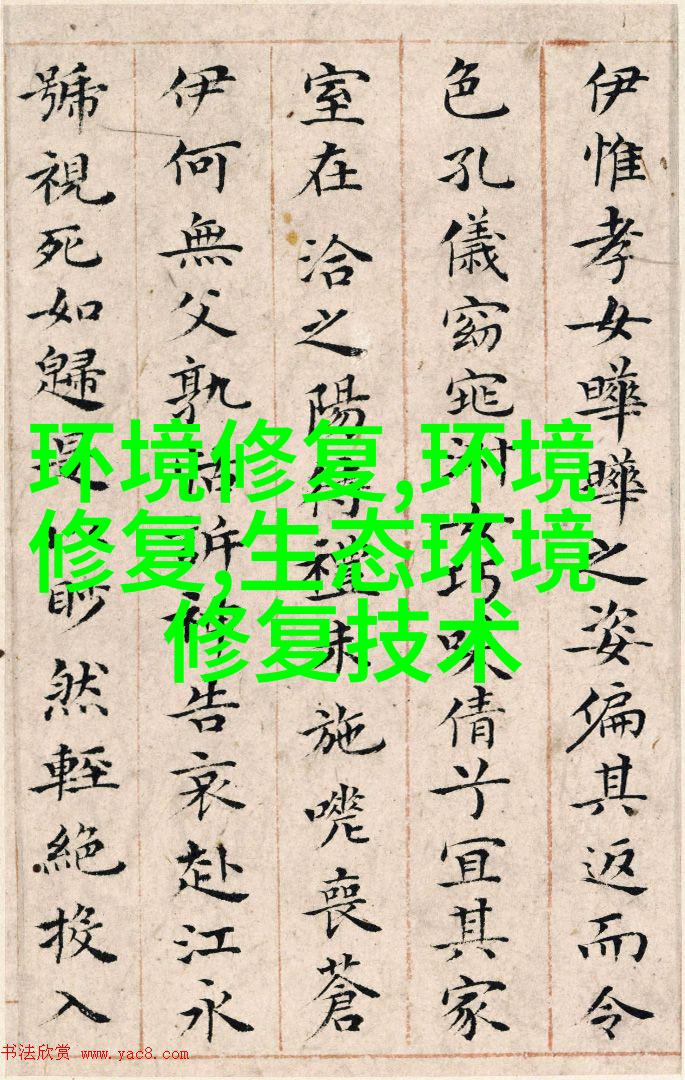 伊惟孝女曅曅之姿偏其返而令
色孔儀窈窕淑女巧咲倩兮宜其家
室在洽之陽待禮未施嗟喪蒼
伊何無父孰怙訴神告哀赴江永
號視死如歸是以眇然輕絕投入
环境修复,环境
修复,生态环境
修复技术
书法欣赏 www.yac8.com